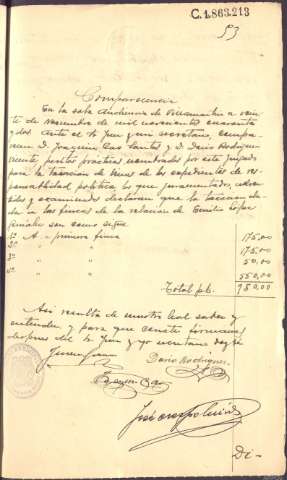 C.1.863.213
53
Comparecencia
En la sala Audiencia de Villamartin a vein-
te de noviembre de mil novecientos cuarenta
y dos ante el Sr Juez y mi secretario, compa-
recen D. Joaquin Cao Santos y D. Dario Rodriguez
peritos practicos nombrados por este juzgado
para la tasacion de bienes de los expedientes de res-
ponsabilidad politica los que juramentados, adver-
tidos y examinados declaran que la tasacion da-
da a las fincas de la relacion de Emilio Lopez
son como sigue
1ª A - primera finca 175,00
2ª " " 175,00
3ª " " 50,00
4ª " " 550,00
Total pts. 950,00
Asi resulta de nuestro leal saber y
entender y para que conste firmamos
despues del Sr Juez y yo secretario doy fe
Dario Rodriguez
Joaquin Cao
Di-